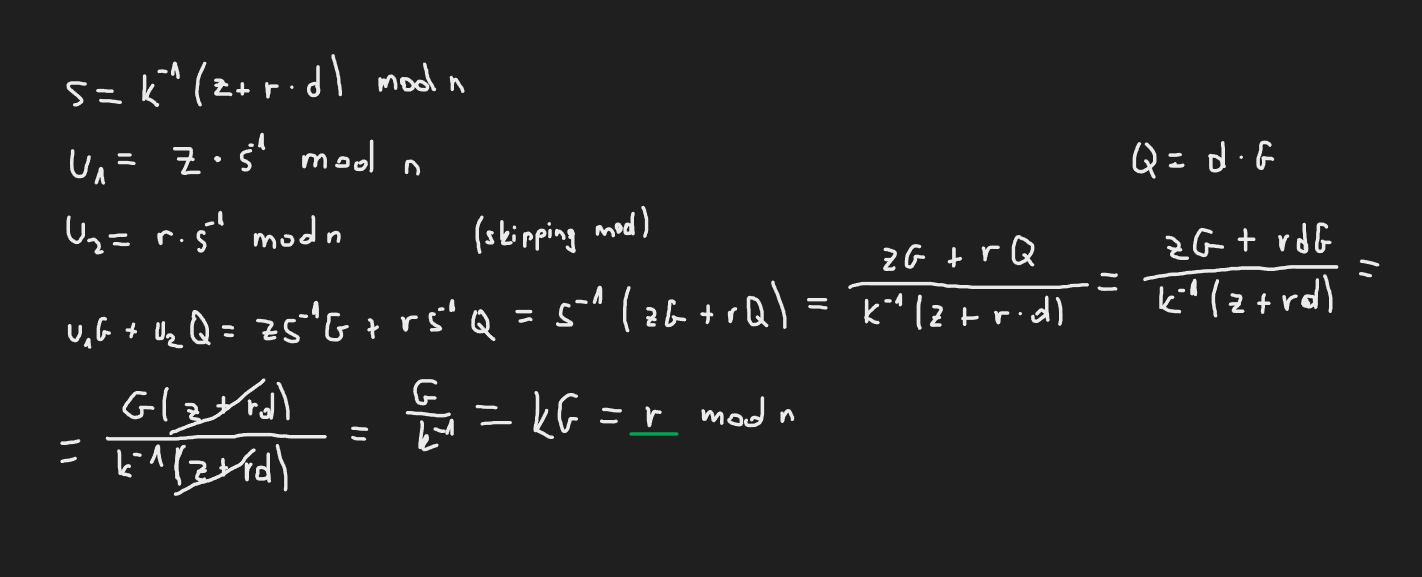 s = k⁻¹ (z + r · d) mod n
u₁ = z · s⁻¹ mod n
Q = d · G
u₂ = r · s⁻¹ mod n (skipping mod)
u₁G + u₂Q = zs⁻¹G + rs⁻¹Q = s⁻¹(zG + rQ) = (zG + rQ) / (k⁻¹(z + r·d)) = (zG + rdG) / (k⁻¹(z + rd)) =
= G(z + rd) / (k⁻¹(z + rd)) = G / k⁻¹ = kG = r mod n